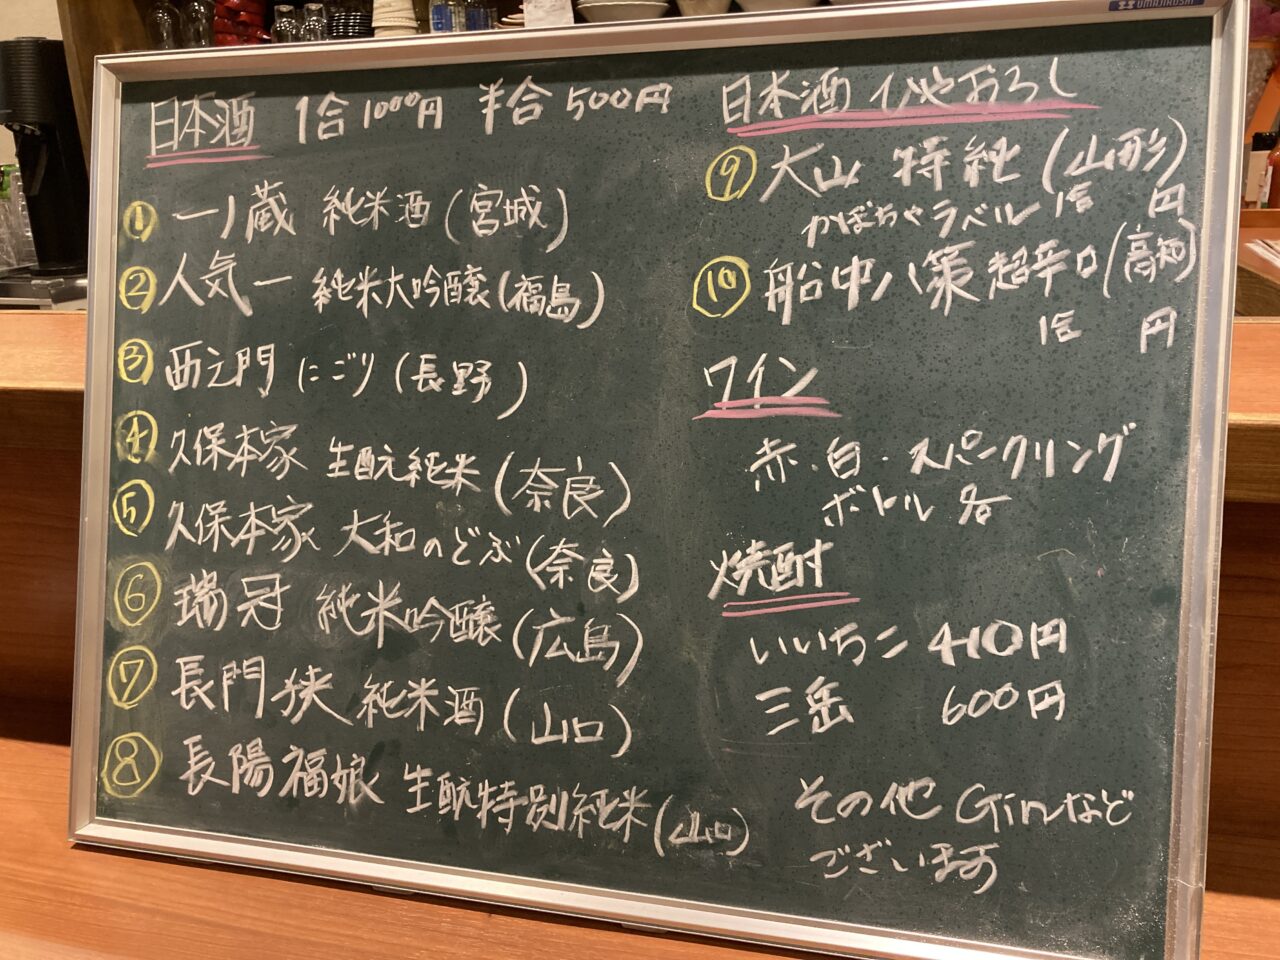 日本酒 1合1000円 半合500円
① 一ノ蔵 純米酒(宮城)
② 人気一 純米大吟醸(福島)
③ 西之門 にごり(長野)
④ 久保本家 生酛純米(奈良)
⑤ 久保本家 大和のどぶ(奈良)
⑥ 瑞冠 純米吟醸(広島)
⑦ 長門峡 純米酒(山口)
⑧ 長陽福娘 生酛特別純米(山口)
日本酒 ひやおろし
⑨ 大山 特純(山形)
かぼちゃラベル 1合 円
⑩ 船中八策 超辛口(高知)
1合 円
ワイン
赤・白・スパークリング
ボトル 各
焼酎
いいちこ 410円
三岳 600円
その他 Ginなど
ございます
UMAJIRUSHI